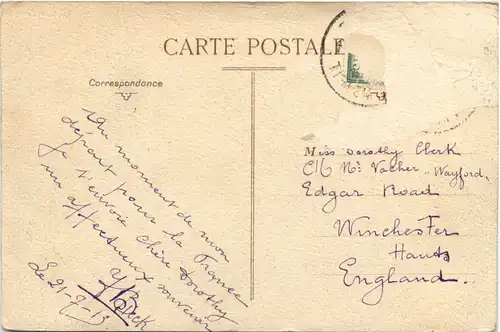 CARTE POSTALE
Correspondance
Au moment de mon
départ pour la France
je t'envoie chère Dorothy
un affectueux souvenir
Le 21-7-13
Miss Dorothy Clerk
C/o Mrs Vacher "Wayford"
Edgar Road
Winchester
Hants
England.